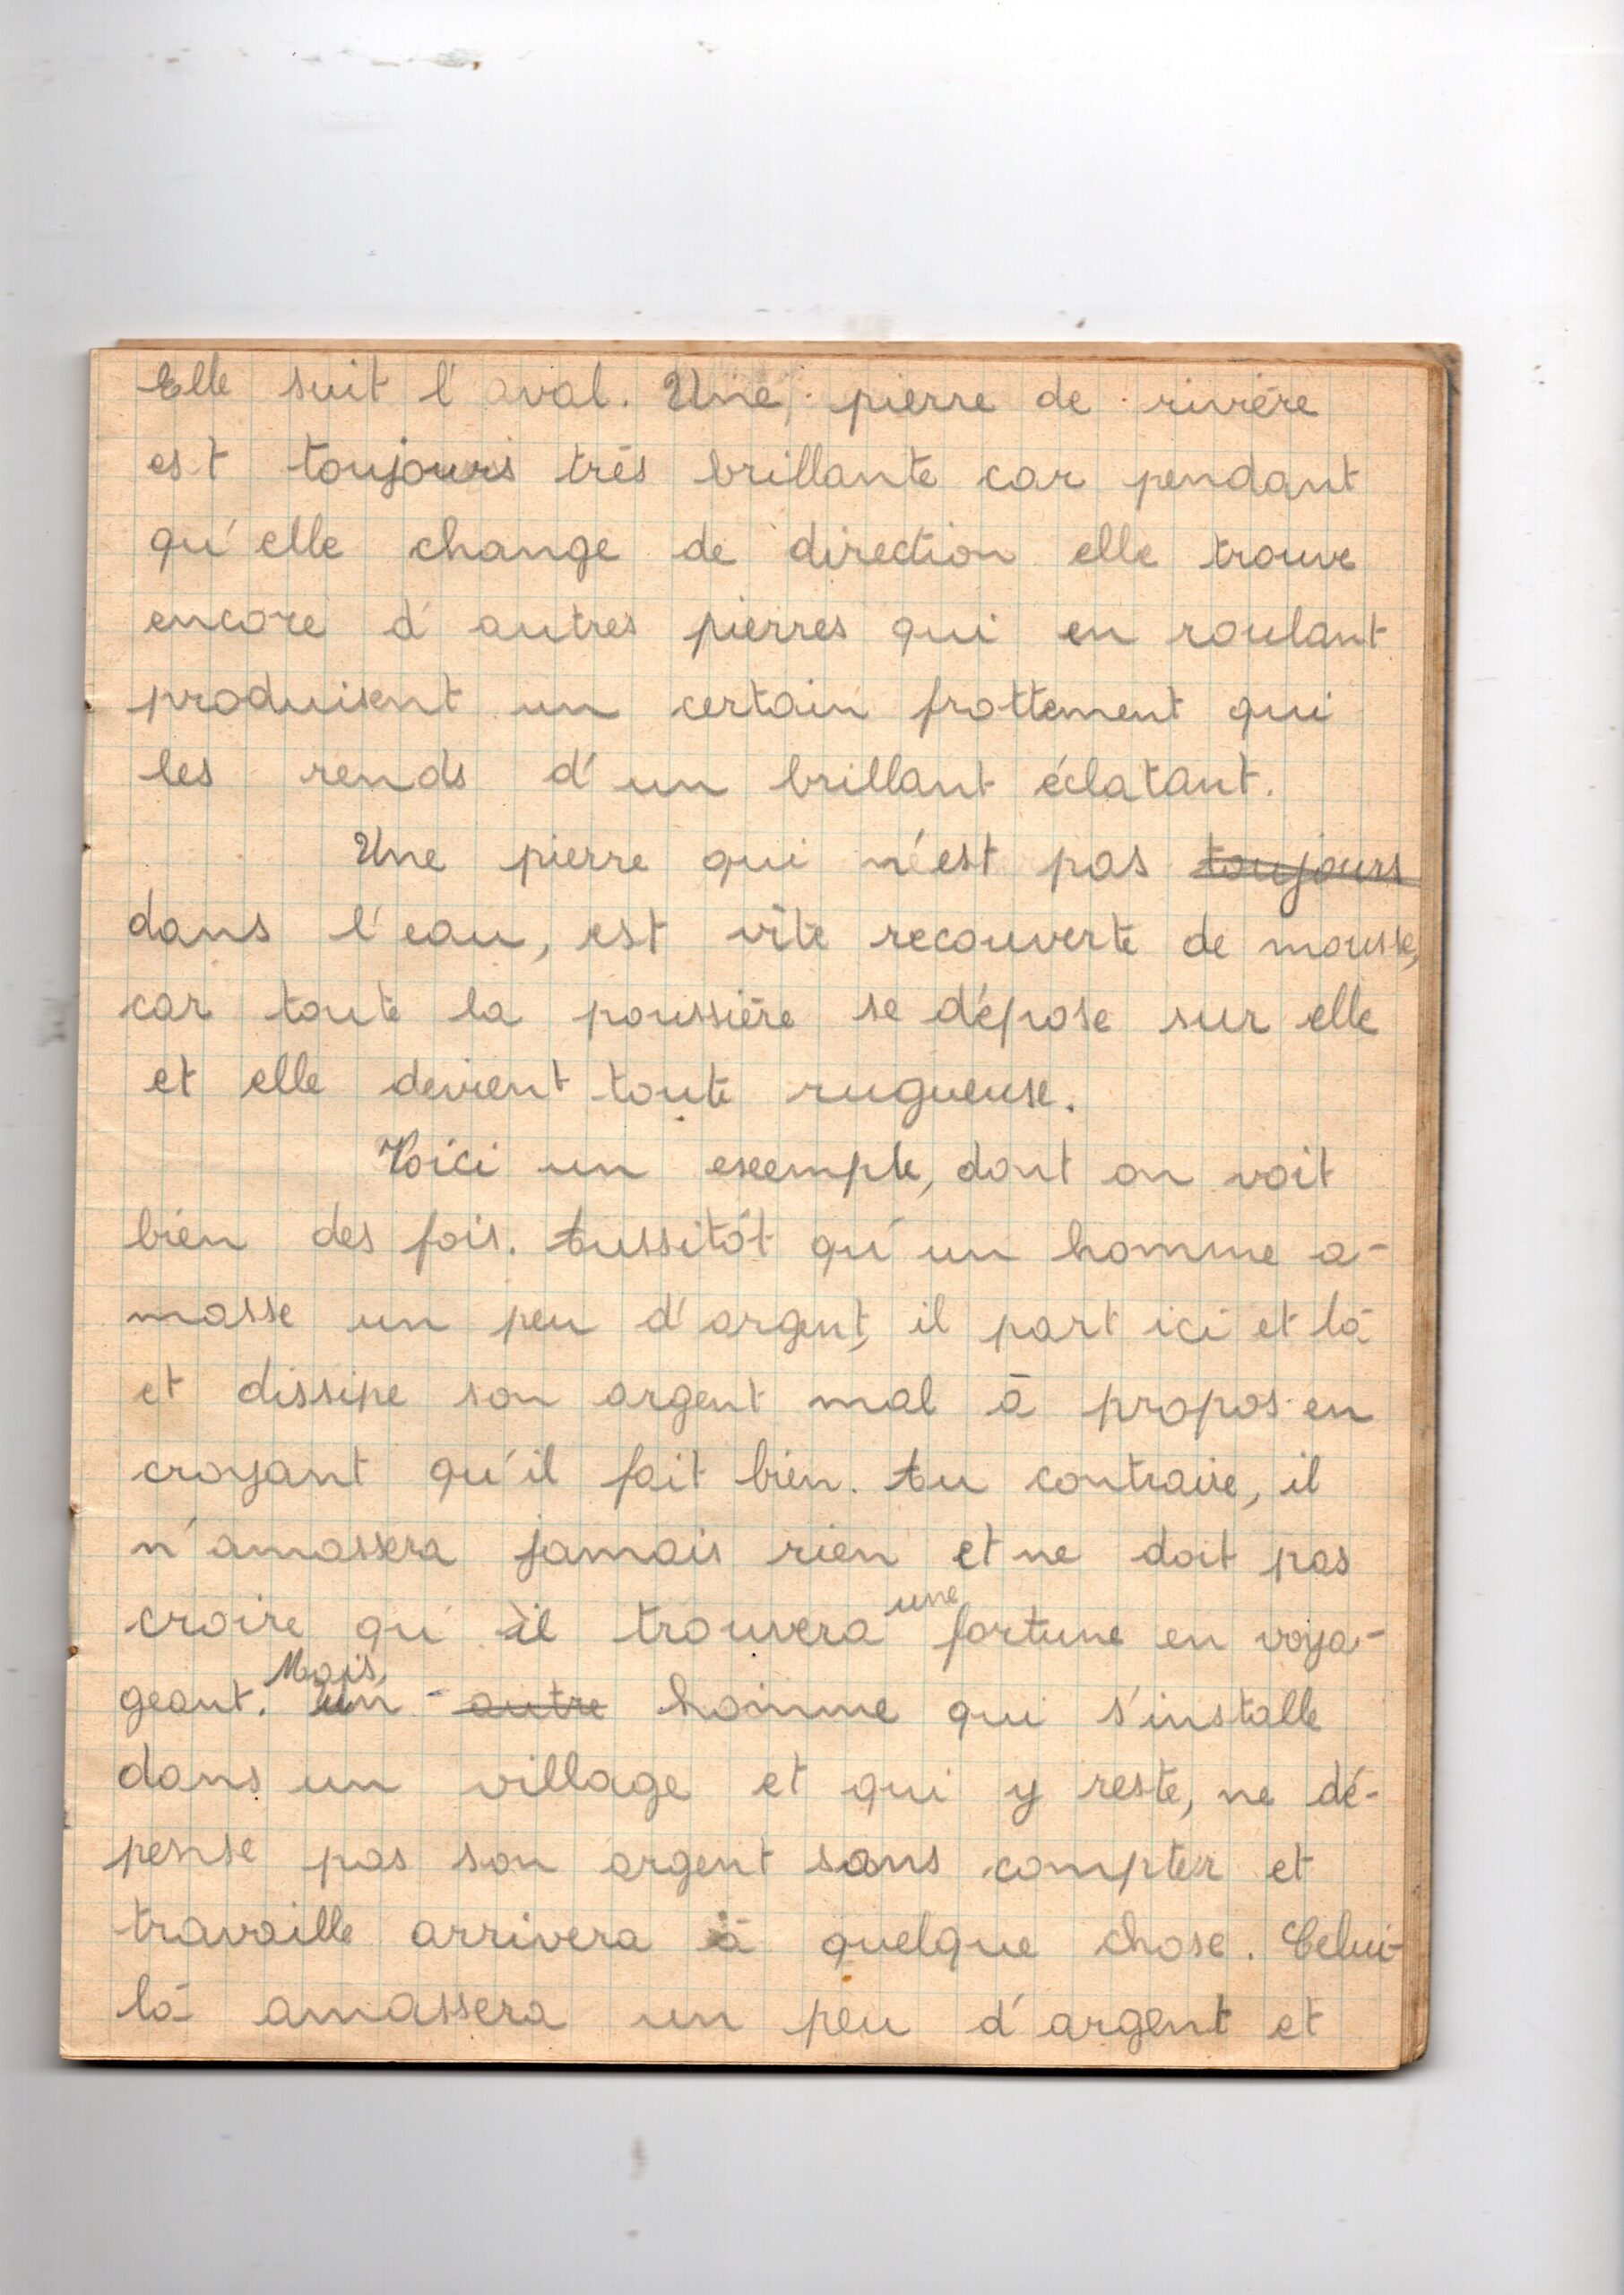 Elle suit l'aval. Une pierre de rivière
est toujours très brillante car pendant
qu'elle change de direction elle trouve
encore d'autres pierres qui en roulant
produisent un certain frottement qui
les rends d'un brillant éclatant.
Une pierre qui n'est pas toujours
dans l'eau, est vîte recouverte de mousse,
car toute la poussière se dépose sur elle
et elle devient toute rugueuse.
Voici un exemple, dont on voit
bien des fois. Aussitôt qu'un homme a-
masse un peu d'argent, il part ici et là
et dissipe son argent mal à propos en
croyant qu'il fait bien. Au contraire, il
n'amassera jamais rien et ne doit pas
croire qu'il trouvera une fortune en voya-
geant. Mais un autre homme qui s'installe
dans un village et qui y reste, ne dé-
pense pas son argent sans compter et
travaille arrivera à quelque chose. Celui-
là amassera un peu d'argent et